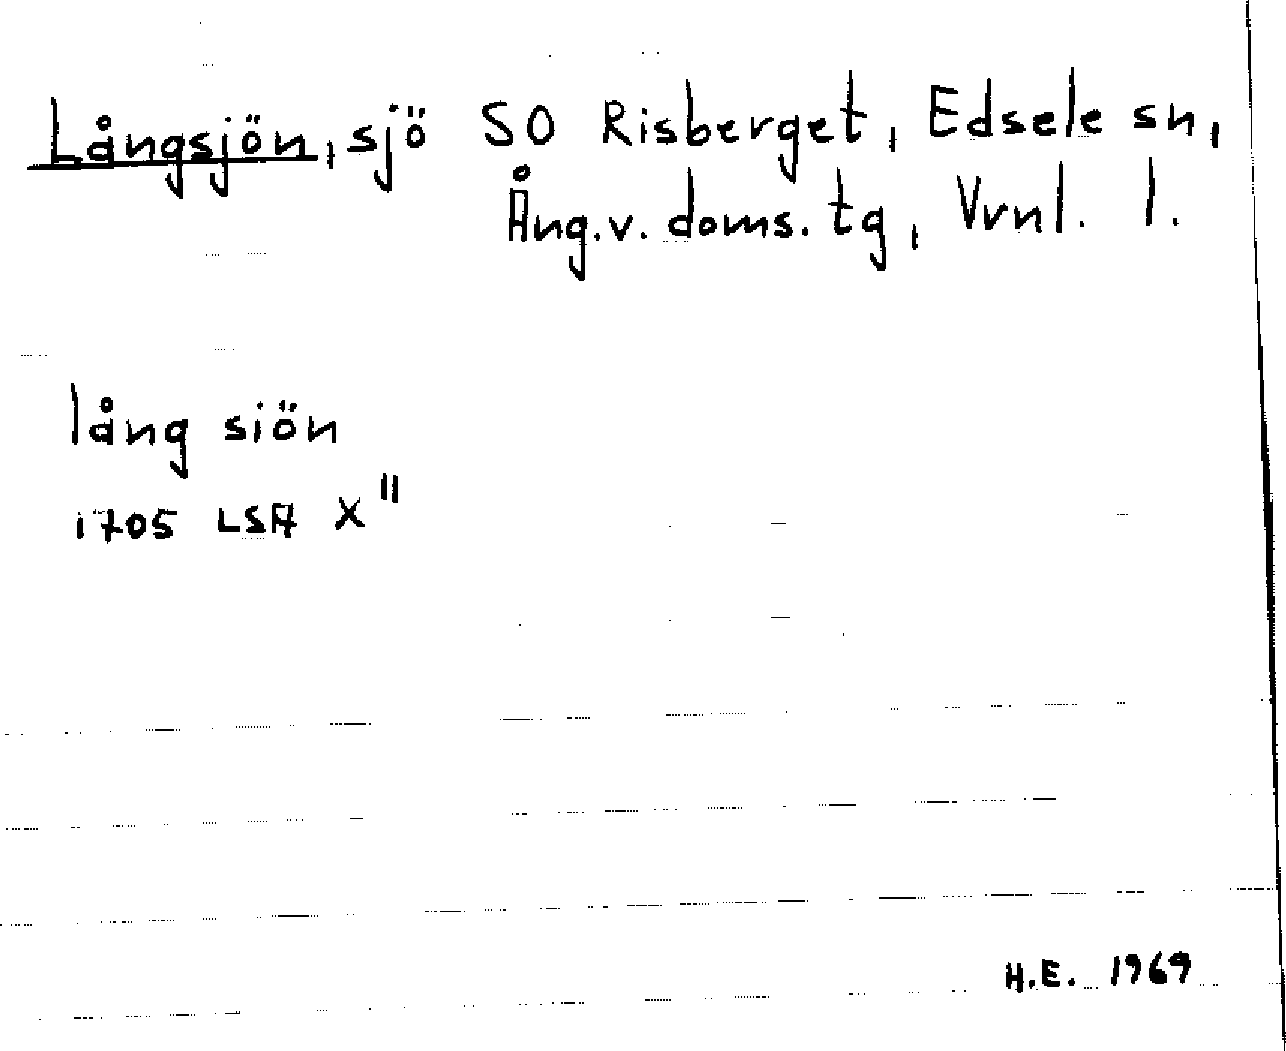 Långsjön, sjö SO Risberget, Edsele sn,
Ång.v. doms. tg, Vrnl. l.
lång siön
1705 LSA X"
H.E. 1969